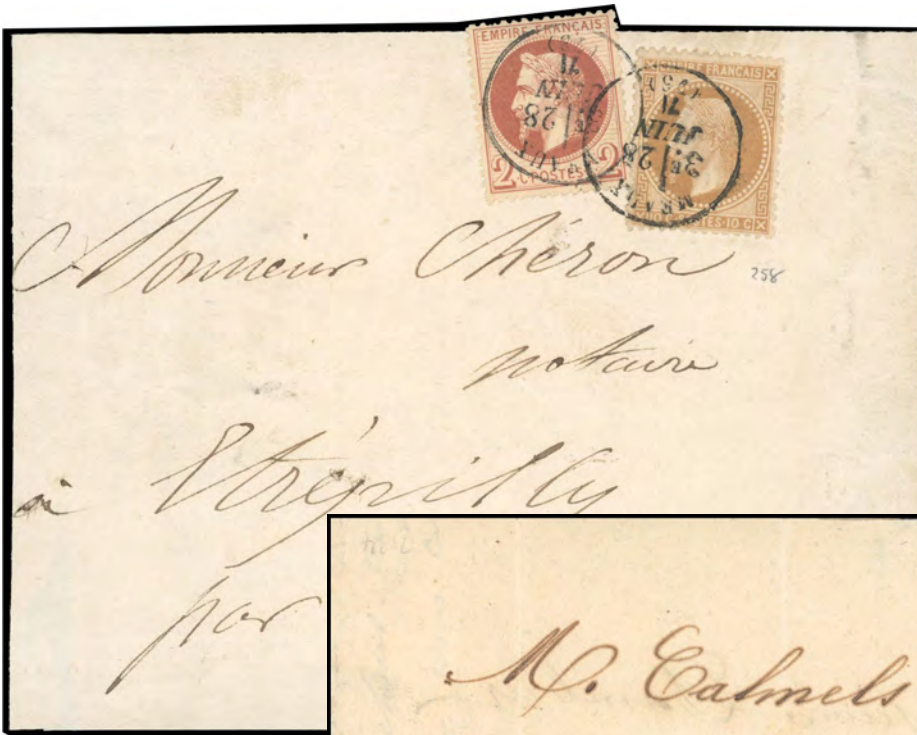 EMPIRE FRANÇAIS
2 C POSTES 2
EMPIRE FRANÇAIS
10 C POSTES 10 C
3E
28
JUIN
71
Monsieur Chéron
258
notaire
à Etrépilly
par
M. Calmels